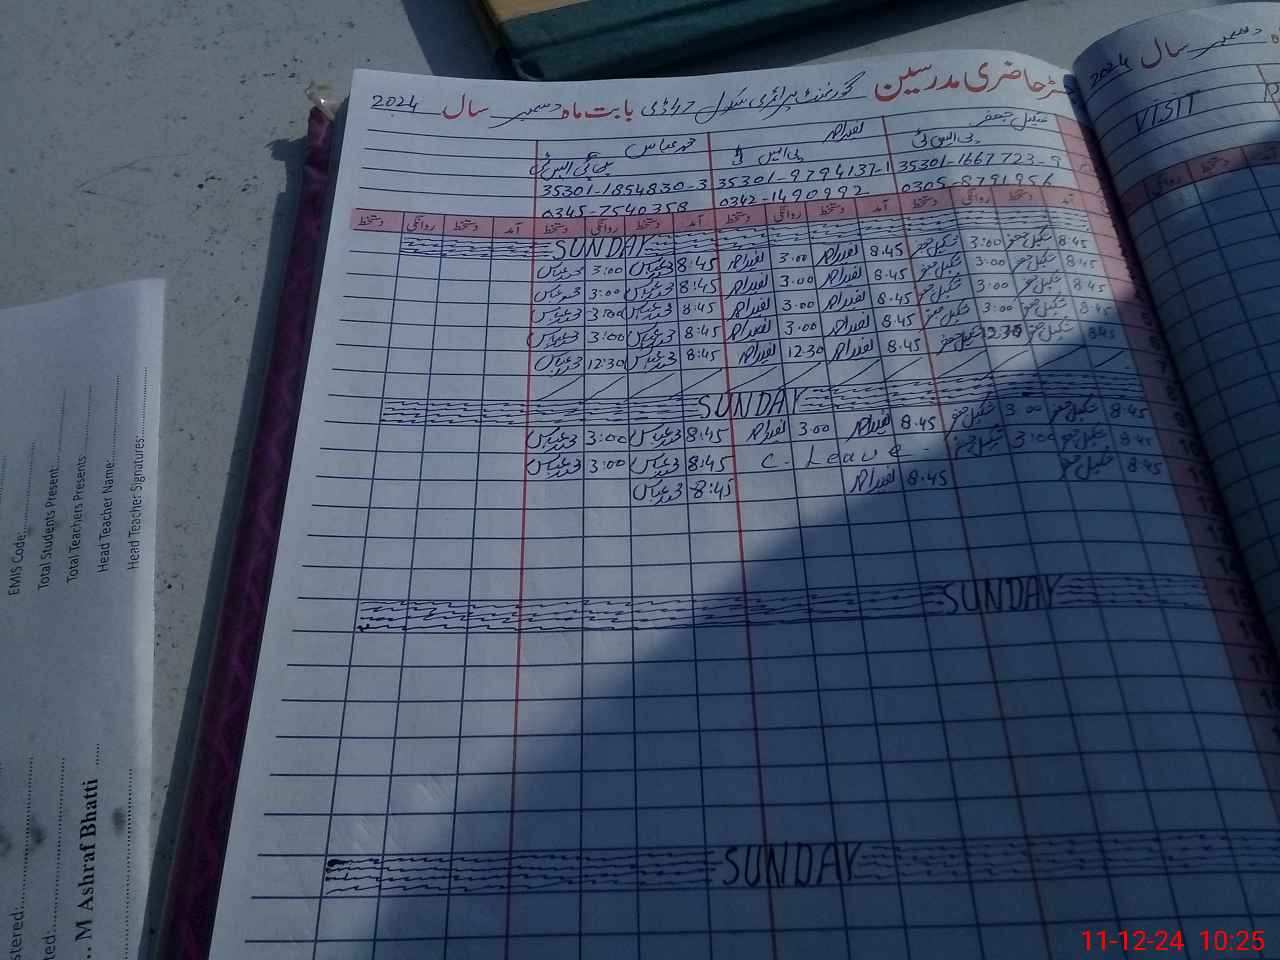 رجسٹر حاضری مدرسین گورنمنٹ پرائمری سکول بابت ماہ دسمبر سال 2024
شکیل جعفر
پی ایس ٹی
35301-1667723-9
0305-8791956
پی ایس ٹی
35301-9794137-1
0342-1490992
محمد عباس
35301-1854830-3
0345-7540358
آمد دستخط روانگی دستخط آمد دستخط روانگی دستخط آمد دستخط روانگی دستخط آمد دستخط روانگی دستخط
SUNDAY
8:45 شکیل جعفر 3:00 شکیل جعفر 8.45 3:00 8:45 محمد عباس 3:00 محمد عباس
8:45 شکیل جعفر 3:00 شکیل جعفر 8.45 3:00 8:45 محمد عباس 3:00 محمد عباس
8:45 شکیل جعفر 3:00 شکیل جعفر 8.45 3:00 8:45 محمد عباس 3:00 محمد عباس
8:45 شکیل جعفر 3:00 شکیل جعفر 8.45 3.00 8:45 محمد عباس 3:00 محمد عباس
8:45 شکیل جعفر 12:30 شکیل جعفر 8.45 12:30 8:45 محمد عباس 12:30 محمد عباس
SUNDAY
8:45 شکیل جعفر 3:00 شکیل جعفر 8.45 3.00 8:45 محمد عباس 3:00 محمد عباس
8:45 شکیل جعفر 3:00 شکیل جعفر C. Leave 8:45 محمد عباس 3:00 محمد عباس
8:45 شکیل جعفر 8.45 8:45 محمد عباس
SUNDAY
SUNDAY
دسمبر سال 2024
VISIT
روانگی دستخط
EMIS Code:
Total Students Present:
Total Teachers Presents
Head Teacher Name:
Head Teacher Signatures:
M Ashraf Bhatti
11-12-24 10:25